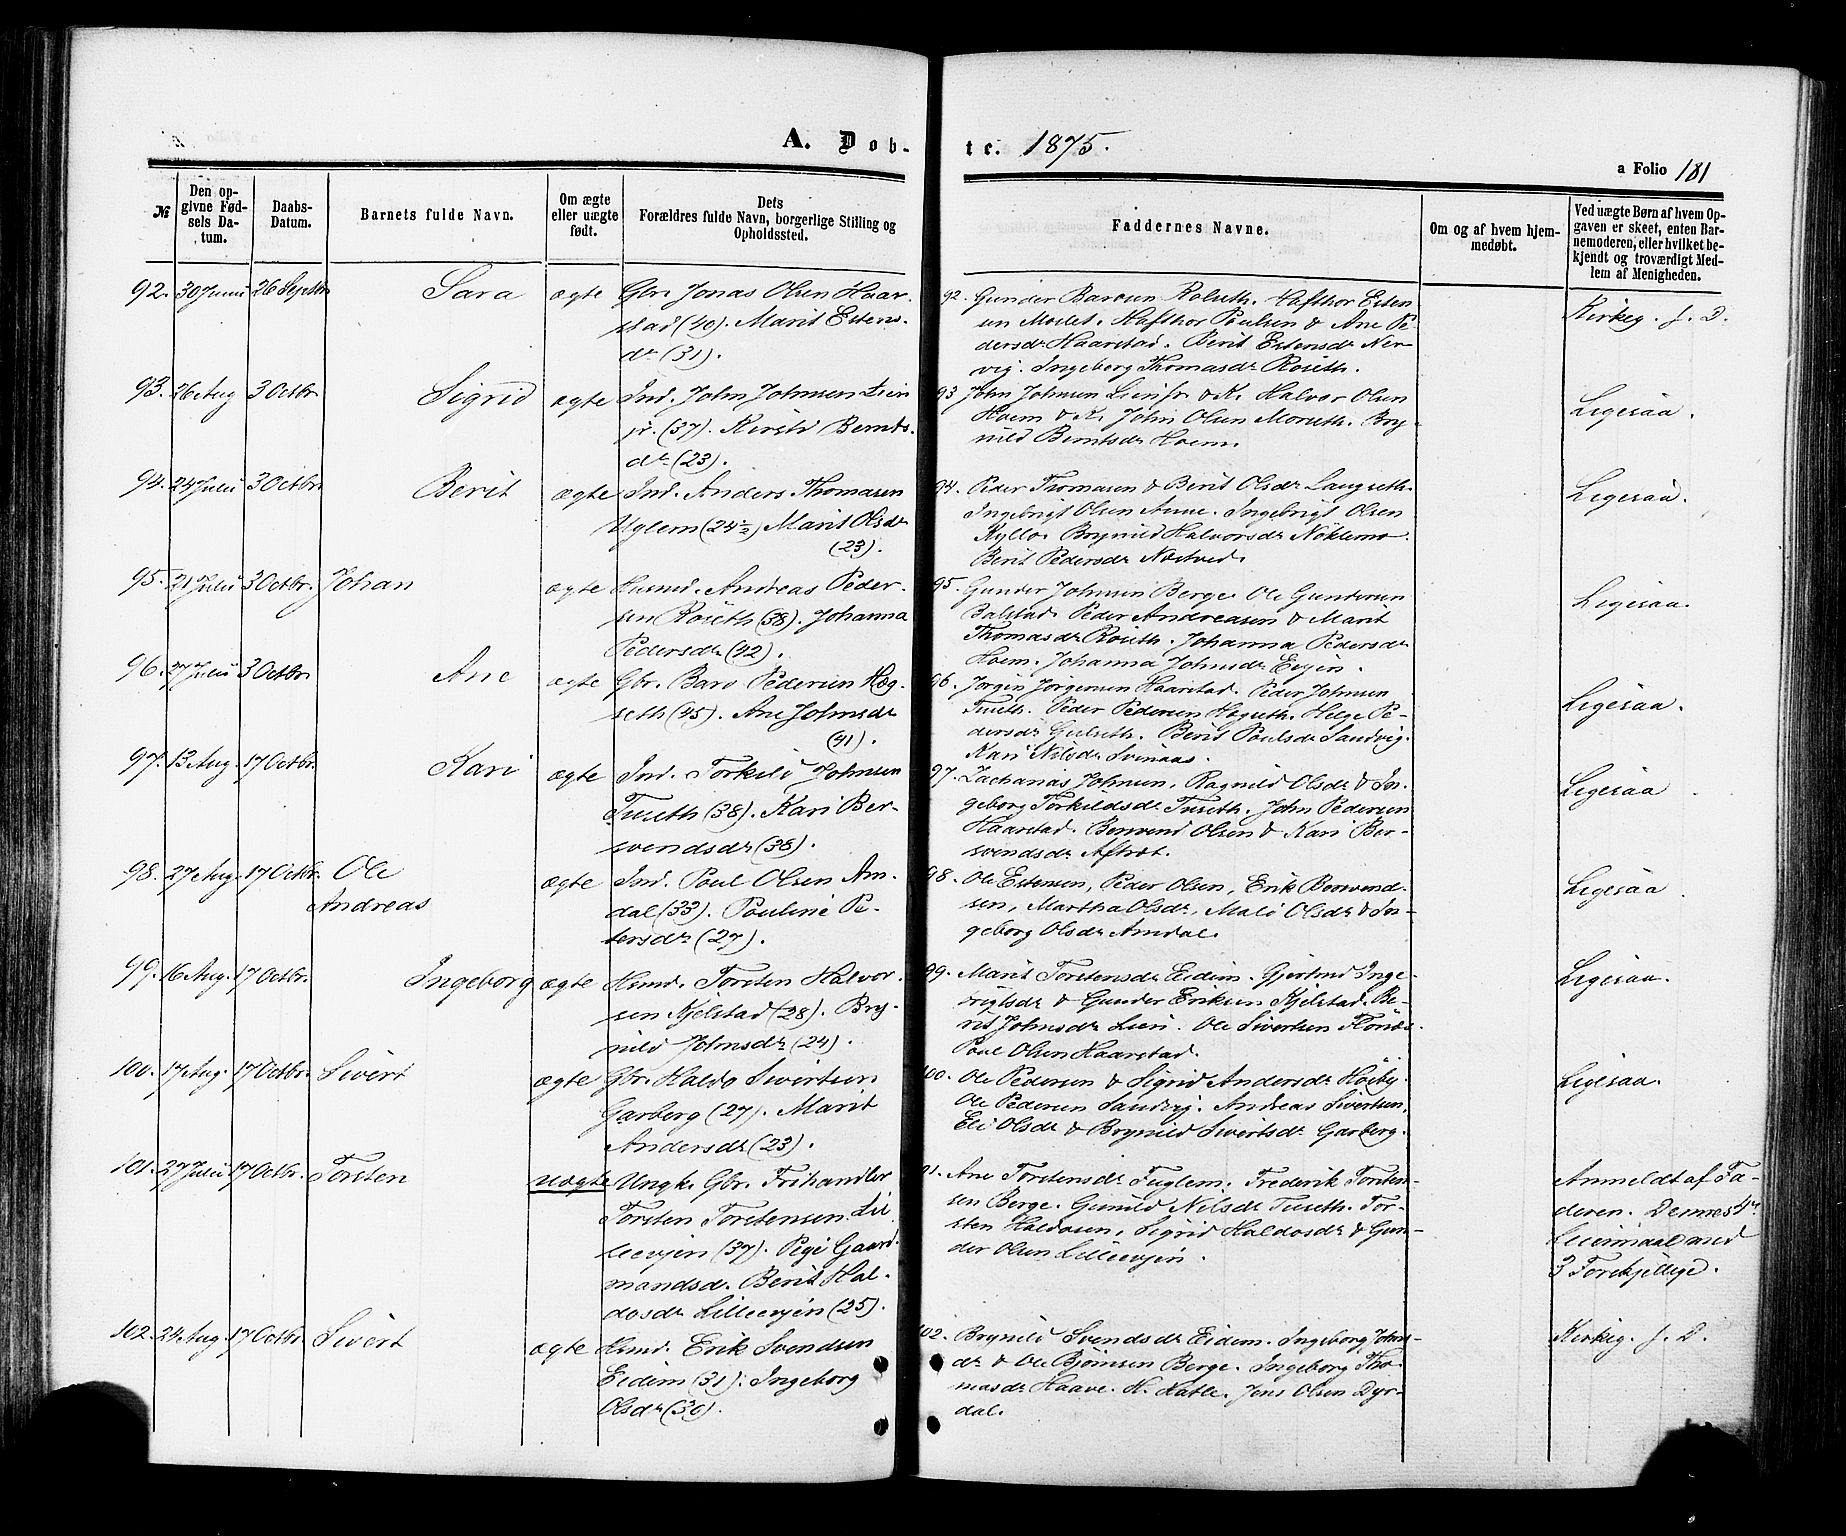 A. Døb-
te. 1875.
a Folio 181
№
Den op-
givne Fød-
sels Da-
tum.
Daabs-
Datum.
Barnets fulde Navn.
Om ægte
eller uægte
født.
Dets
Forældres fulde Navn, borgerlige Stilling og
Opholdssted.
Faddernes Navne.
Om og af hvem hjem-
medøbt.
Ved uægte Børn af hvem Op-
gaven er skeet, enten Bar-
nemoderen, eller hvilket be-
kjendt og troværdigt Med-
lem af Menigheden.
92. 30 Juni 26 Septbr Sara ægte Gbr. Jonas Olsen Haar-
stad (40). Marit Estens-
dr (31).
92. Gunder Barosen Rolseth. Hafthor Esten-
sen Moslet. Hafthor Poulsen & Ane Pe-
dersdr Haarstad. Berit Estensdr Ner-
vig. Ingeborg Thomasdr Röseth.
Kirkeg. f. D.
93. 26 Aug 3 Octbr Sigrid ægte Ind. John Johnsen Lien
jr. (37). Kirsti Bernts-
dr (23).
93 John Johnsen Lien sr & K. Halvor Olsen
Hoem & K. John Olsen Moseth. Bry-
nild Berntsdr Hoem.
Ligesaa.
94. 24 Julii 3 Octbr Berit ægte Ind. Anders Thomasen
Uglem (24½) Marit Olsdr
(23).
94. Peder Thomasen & Berit Olsdr Langseth.
Ingebrigt Olsen Aune. Ingebrigt Olsen
Kyllo. Brynild Halvorsdr Nöklemo.
Berit Pedersdr Næstved.
Ligesaa.
95. 21 Julii 3 Octbr. Johan ægte Husmd. Andreas Peder-
sen Röseth (38). Johanna
Pedersdr (42).
95. Gunder Johnsen Berge. Ole Gundersen
Balstad. Peder Andreasen & Marit
Thomasdr Röseth. Johanna Pedersdr
Hoem. Johanna Johnsdr Evjen.
Ligesaa.
96. 27 Julii 3 Octbr Ane ægte Gbr. Baro Pedersen Hög-
seth (45). Ane Johnsdr
(41).
96. Jörgen Jörgensen Haarstad. Peder Johnsen
Tuseth. Peder Pedersen Högseth. Helge Pe-
dersdr Gulseth. Berit Poulsdr Sandvig.
Kari Nilsdr Svinaas.
Ligesaa.
97. 13 Aug. 17 Octbr. Kari ægte Ind. Torkild Johnsen
Tuseth (38). Kari Ber-
svendsdr (38).
97. Zacharias Johnsen, Ragnild Olsdr & In-
geborg Torkildsdr Tuseth. John Pedersen
Haarstad. Bersvend Olsen & Kari Ber-
svendsdr Aftret.
Ligesaa
98. 27 Aug. 17 Octbr. Ole
Andreas
ægte Ind. Poul Olsen Am-
dal (33). Pauline Pe-
tersdr (27).
98. Ole Estensen, Peder Olsen, Erik Bersvend-
sen, Martha Olsdr, Malo Olsdr & In-
geborg Olsdr Amdal.
Ligesaa
99. 16 Aug. 17 Octbr. Ingeborg ægte Hsmd. Torsten Halvor-
sen Kjelstad (28). Bry-
nild Johnsdr (24).
99. Marit Torstensdr Eidem. Gjertrud Inge-
brigtsdr & Gunder Eriksen Kjelstad. Be-
rit Johnsdr Lien. Ole Sivertsen Flönæs.
Poul Olsen Haarstad.
Ligesaa.
100. 17 Aug. 17 Octbr. Sivert ægte Gbr. Haldo Sivertsen
Garberg (27). Marit
Andersdr (23).
100. Ole Pedersen & Sigrid Andersdr Höiby.
Ole Pedersen Sandvig. Andreas Sivertsen,
Eli Olsdr & Brynild Sivertsdr Garberg.
Ligesaa.
101. 27 Julii 17 Octbr. Torsten uægte Ungk. Gbr. Frihandler
Torsten Torstensen Lil-
leevjen (37). Pige Gaard-
mandsd. Berit Hal-
dosdr Lilleevjen (25).
101. Ane Torstensdr Fuglem. Frederik Torsten-
sen Berge. Gunild Nilsdr Tuseth. Tor-
sten Haldosen, Sigrid Haldosdr & Gun-
der Olsen Lilleevjen.
Anmeldt af Fa-
deren. Dennes 4de
Leiermaal med
3 Forskjellige.
102. 24 Aug. 17 Octbr. Sivert ægte Hsmd. Erik Svendsen
Eidem (31). Ingeborg
Olsdr (30).
102. Brynild Svendsdr Eidem. Ingeborg Johns-
dr & Ole Björnsen Berge. Ingeborg Tho-
masdr Haave. Jens Olsen Dyr-
dal.
Kirkeg. f. D.